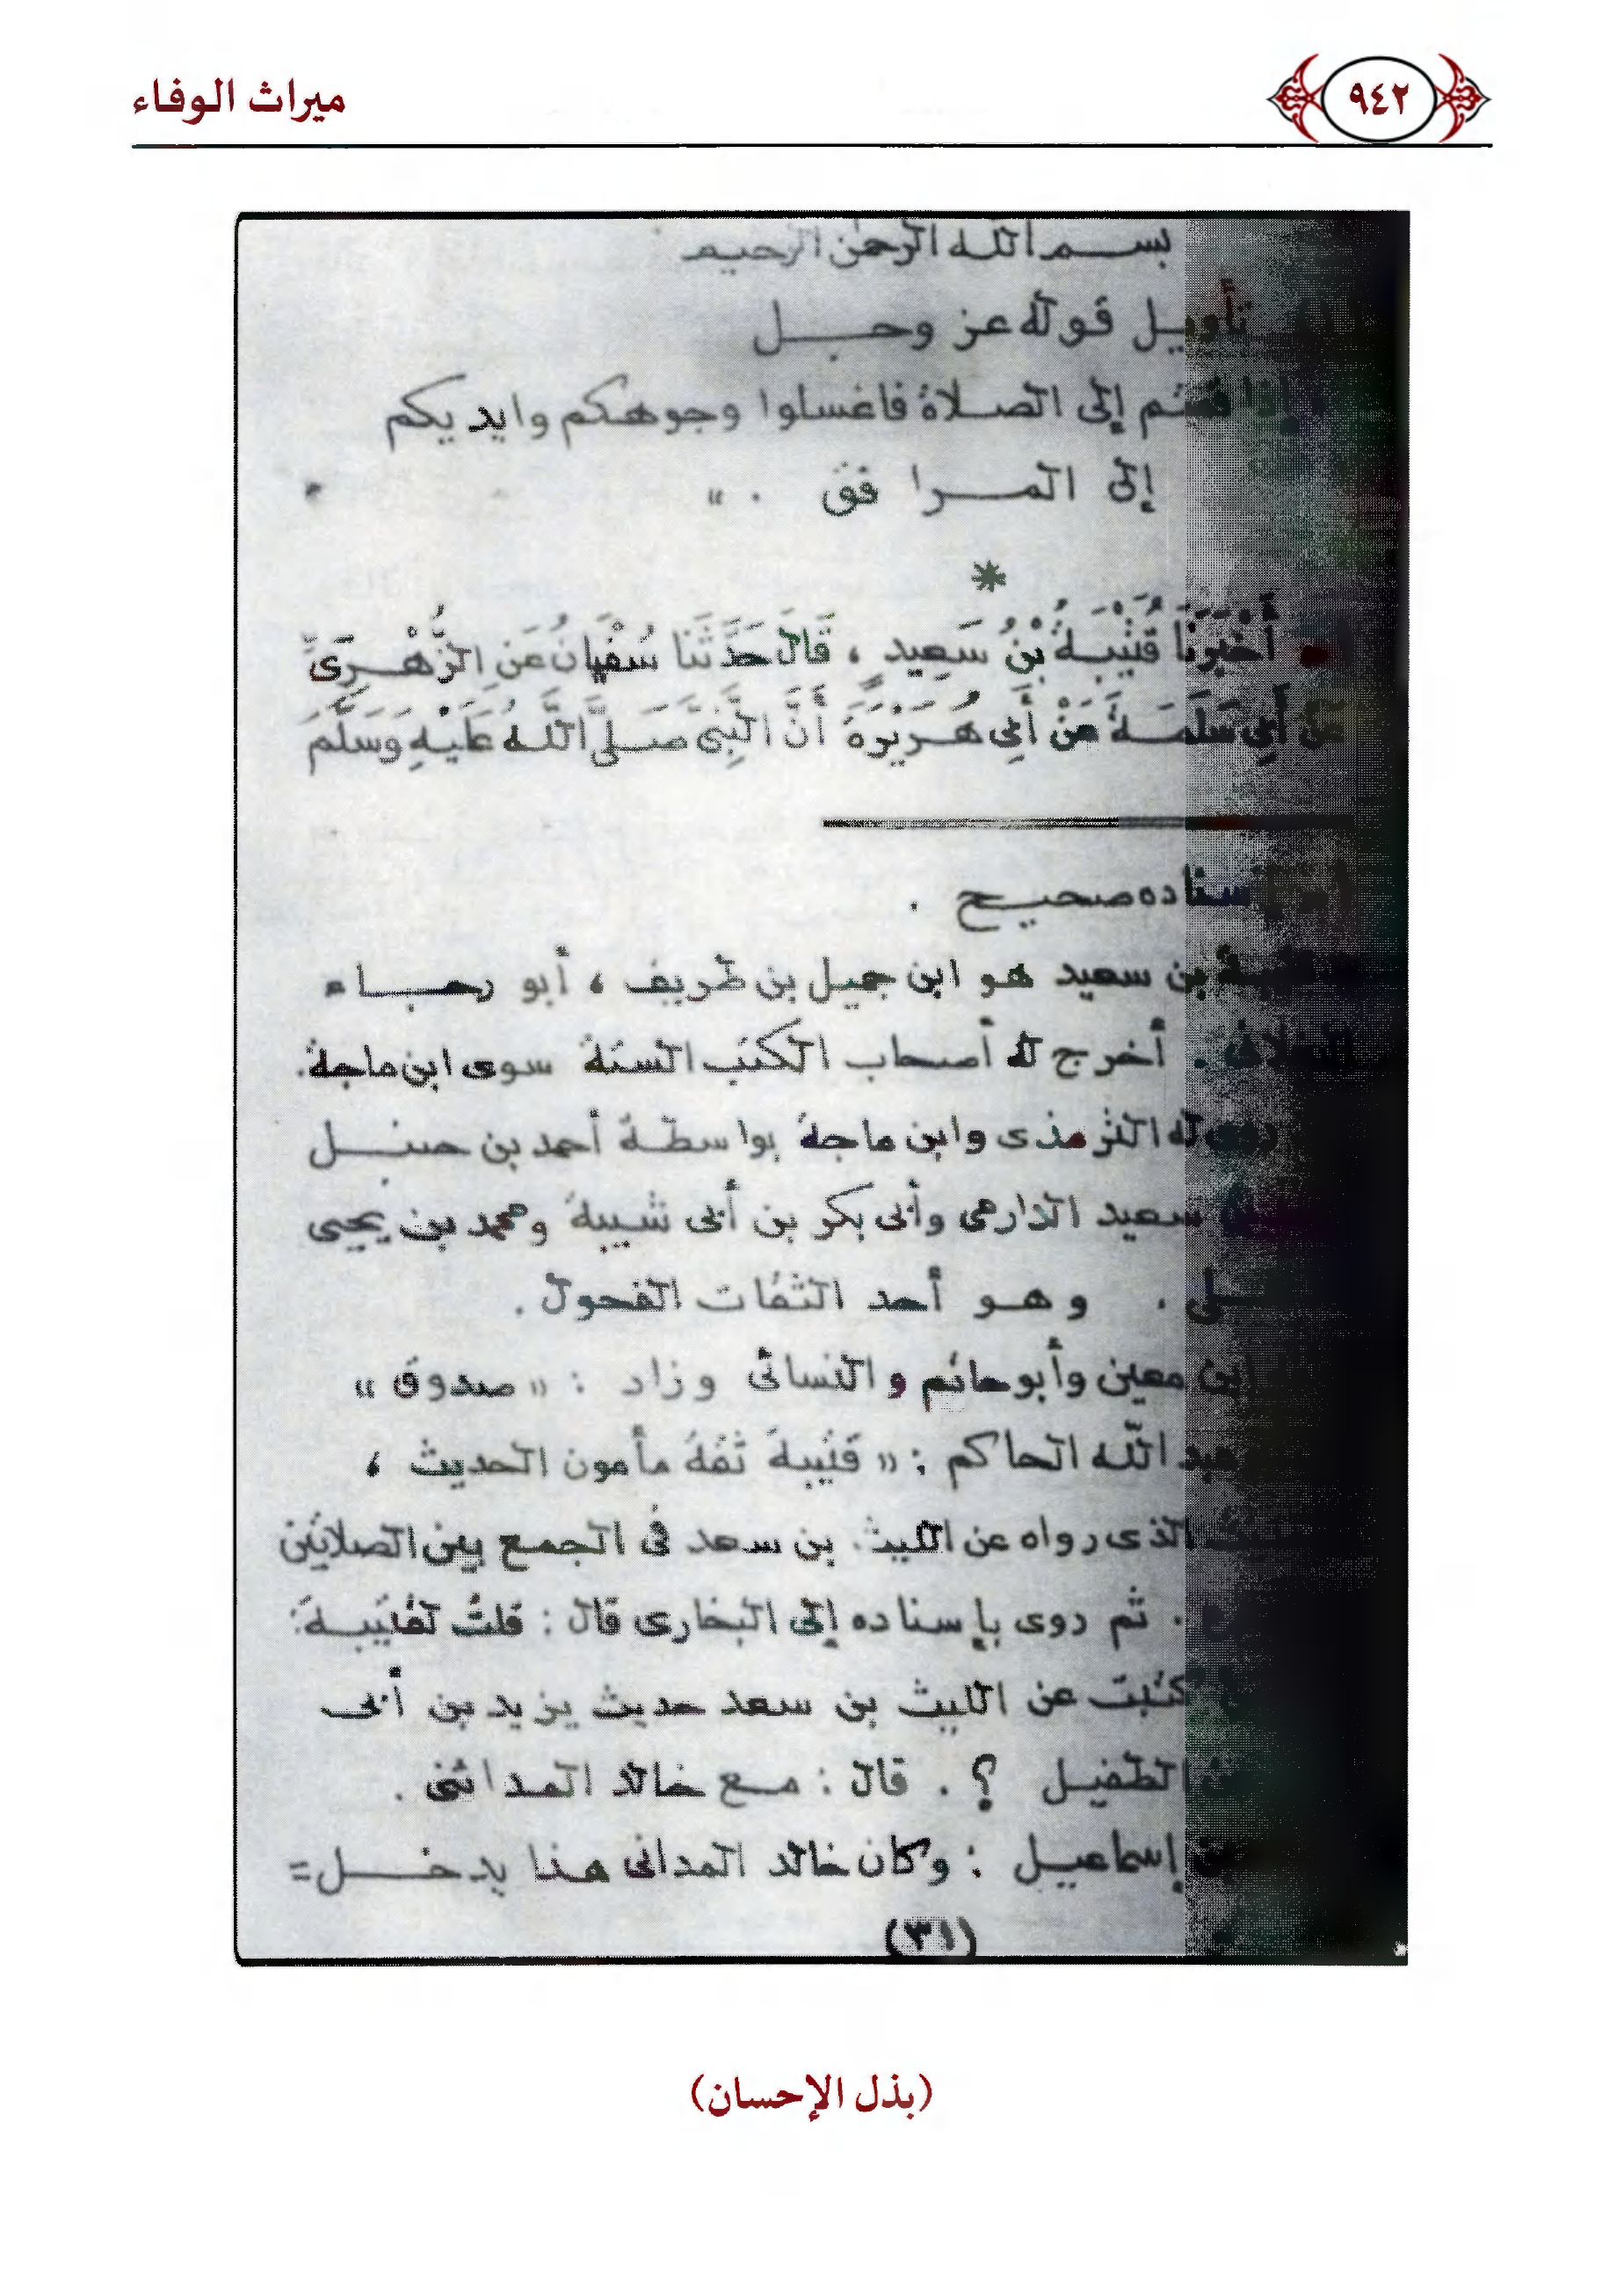 ميراث الوفاء
٩٤٢
بسم الله الرحمن الرحيم
تأويل قوله عز وجل
إذا قمتم إلى الصلاة فاغسلوا وجوهكم وايديكم
إلى المرافق . »
*
أَخْبَرَنَا قُتَيْبَةُ بْنُ سَعِيدٍ ، قَالَ حَدَّثَنَا سُفْيَانُ عَنِ الزُّهْرِىِّ
عَنْ أَبِى سَلَمَةَ عَنْ أَبِى هُرَيْرَةَ أَنَّ النَّبِىَّ صَلَّى اللَّهُ عَلَيْهِ وَسَلَّمَ
إسناده صحيح .
بن سعيد هو ابن جميل بن طريف ، أبو رجاء
. أخرج له أصحاب الكتب الستة سوى ابن ماجة .
روى له الترمذى وابن ماجة بواسطة أحمد بن حنبل
سعيد الدارمى وأبى بكر بن أبى شيبة ومحمد بن يحيى
. وهو أحد الثقات الفحول .
ابن معين وأبو حاتم والنسائى وزاد : « صدوق »
عبد الله الحاكم : « قتيبة ثقة مأمون الحديث ،
الذى رواه عن الليث بن سعد فى الجمع بين الصلاتين
. ثم روى بإسناده إلى البخارى قال : قلتُ لقتيبة :
كتبت عن الليث بن سعد حديث يزيد بن أبى
الطفيل ؟ . قال : مع خالد المدائنى .
إسماعيل : وكان خالد المدائنى هذا يدخل =
(٣١)
(بذل الإحسان)